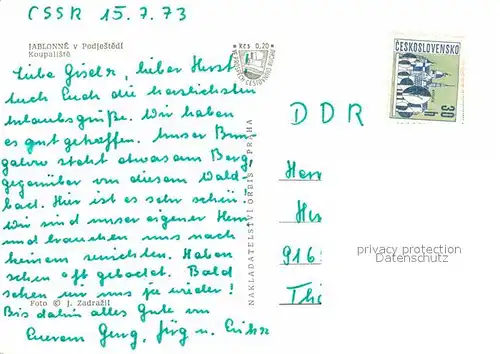 CSSR 15.7.73
JABLONNÉ v Podještědí
Koupaliště
Kčs 0,20
ČESKOSLOVENSKO
30 h
Liebe Gisela, lieber Horst
Euch die herzlichsten
Urlaubsgrüße. Wir haben
es gut getroffen. Unser Bun
galow steht etwas am Berg,
gegenüber von diesem Wald-
bad. Hier ist es sehr schön!
Wir sind unser eigener Herr
und brauchen uns nach
keinem zu richten. Haben
schon oft gebadet. Bald
sehen wir uns ja wieder!
Foto © J. Zadražil
Bis dahin alles Gute von
Eueren Jörg u.
NAKLADATELSTVÍ ORBIS PRAHA
DDR
Herr
He
916
Thi
privacy protection
Datenschutz